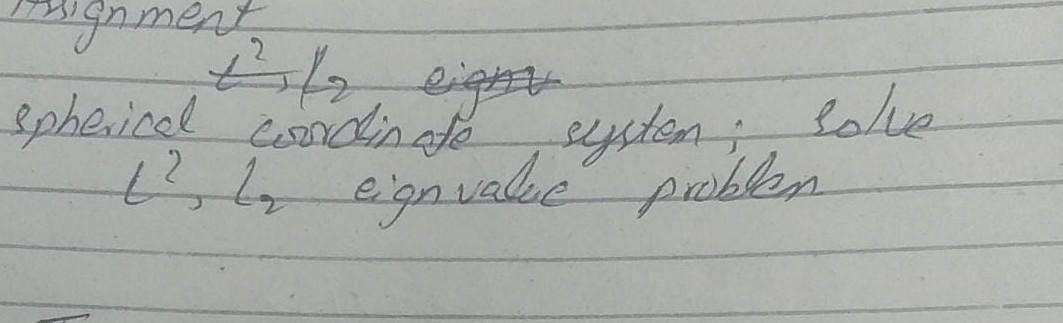 Assignment
L², L₂ eignv
spherical coordinate system; solve
L², L₂ eignvalue problem